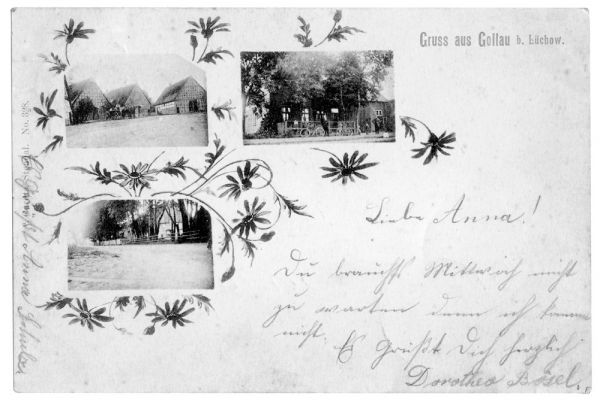 Gruss aus Gollau b. Lüchow.
Liebe Anna!
Du brauchst Mittwoch nicht
zu warten denn ich komme
nicht. Es Grüßt Dich herzlich
Dorothea Bösel.
No. 828.